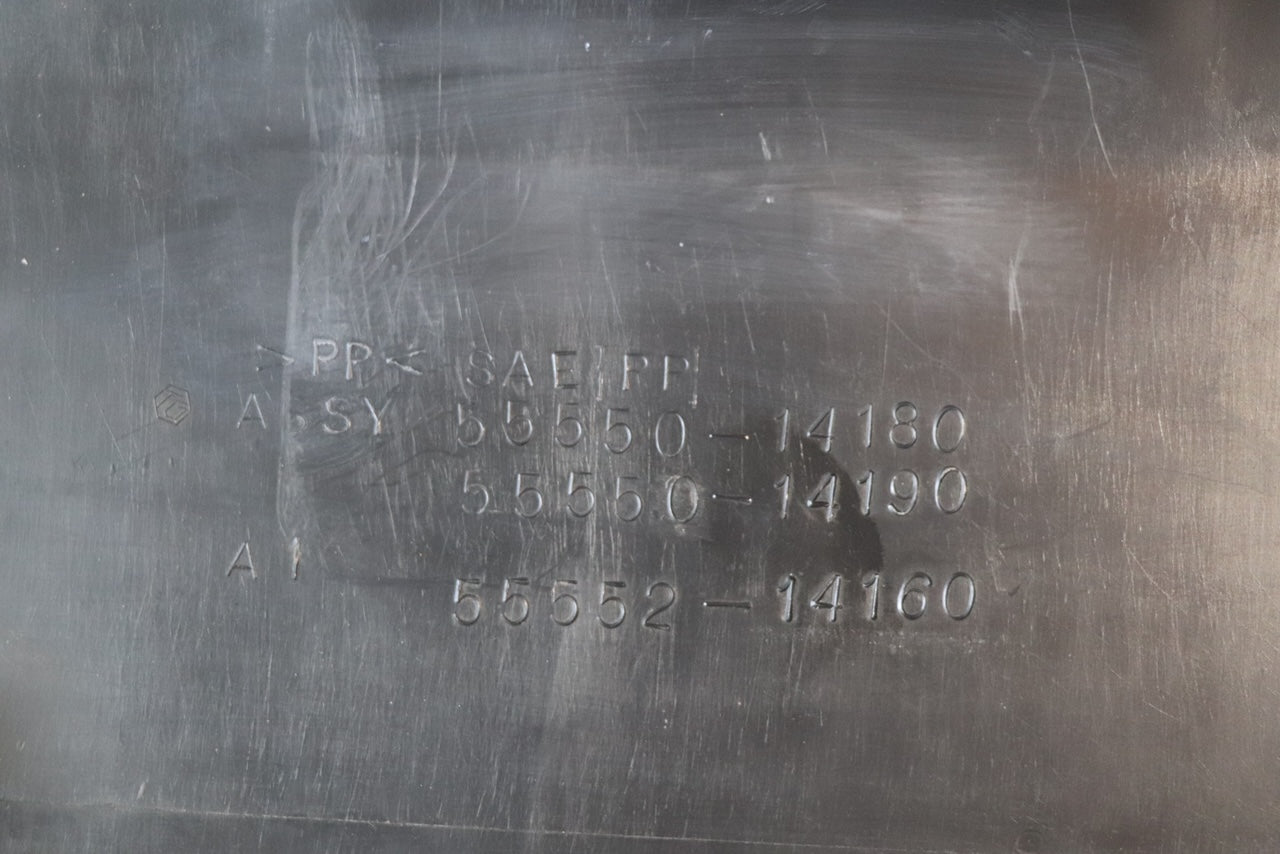 >PP< SAE PP
ASSY 55550-14180
55550-14190
A1
55552-14160